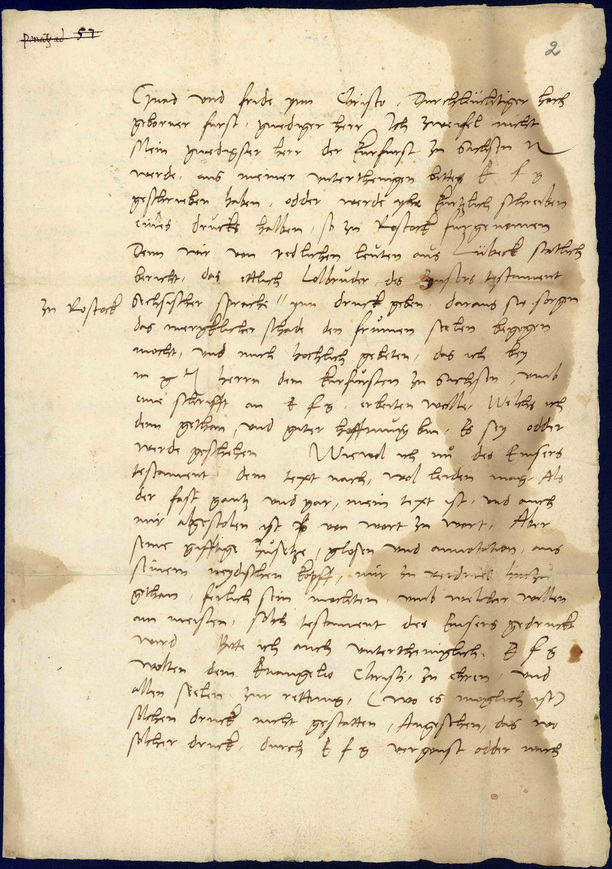 2
Gnad vnd fride ynn Christo. Durchleuchtiger hoch
geborner furst, gnediger herr Ich zweifel nicht
Mein gnedigster herr der Kurfurst zu Sachsen
werde, aus meiner vnterthenigen bitte, E f g
geschrieben haben, odder werde yhe kurtzlich schreiben
eines drucks halben, so zu Rostock furgenomen
Denn wir von redlichen leuten aus Lübeck stattlich
bericht, das ettlich Lolbruder, des Emsers testament
zu Rostock
Sechsischer sprache ynn druck geben, daraus sie sorgen
das mercklicher schade den frumen seelen begegen
mocht, vnd mich hochlich gebeten, das ich bey
m g herrn dem Kurfursten zu Sachsen, vmb
eine schrifft an E f g. erbeiten wolte, Welchs ich
denn gethan, vnd guter hoffnung bin, Es sey odder
werde geschehen Wiewol ich nu des Emsers
testament dem text nach, wol leiden mag, Als
der fast gantz vnd gar, mein text ist, vnd auch
mir abgestolen ist von wort zu wort, Aber
seine gifftige zusetze, glosen vnd annotation, aus
seinem neydischen kopff, mir zu verdries hinzu
gethan, ferlich sein mochten vmb welcher willen
am meisten, solch testament des Emsers gedruckt
wird Bitte ich auch vntertheniglich, E f g
wolten dem Euangelio Christi, zu ehren, vnd
allen seelen zur rettung, (wo es muglich ist)
solchen druck nicht gestatten, Angesehen, das wo
solcher druck, durch E f g vergunst odder